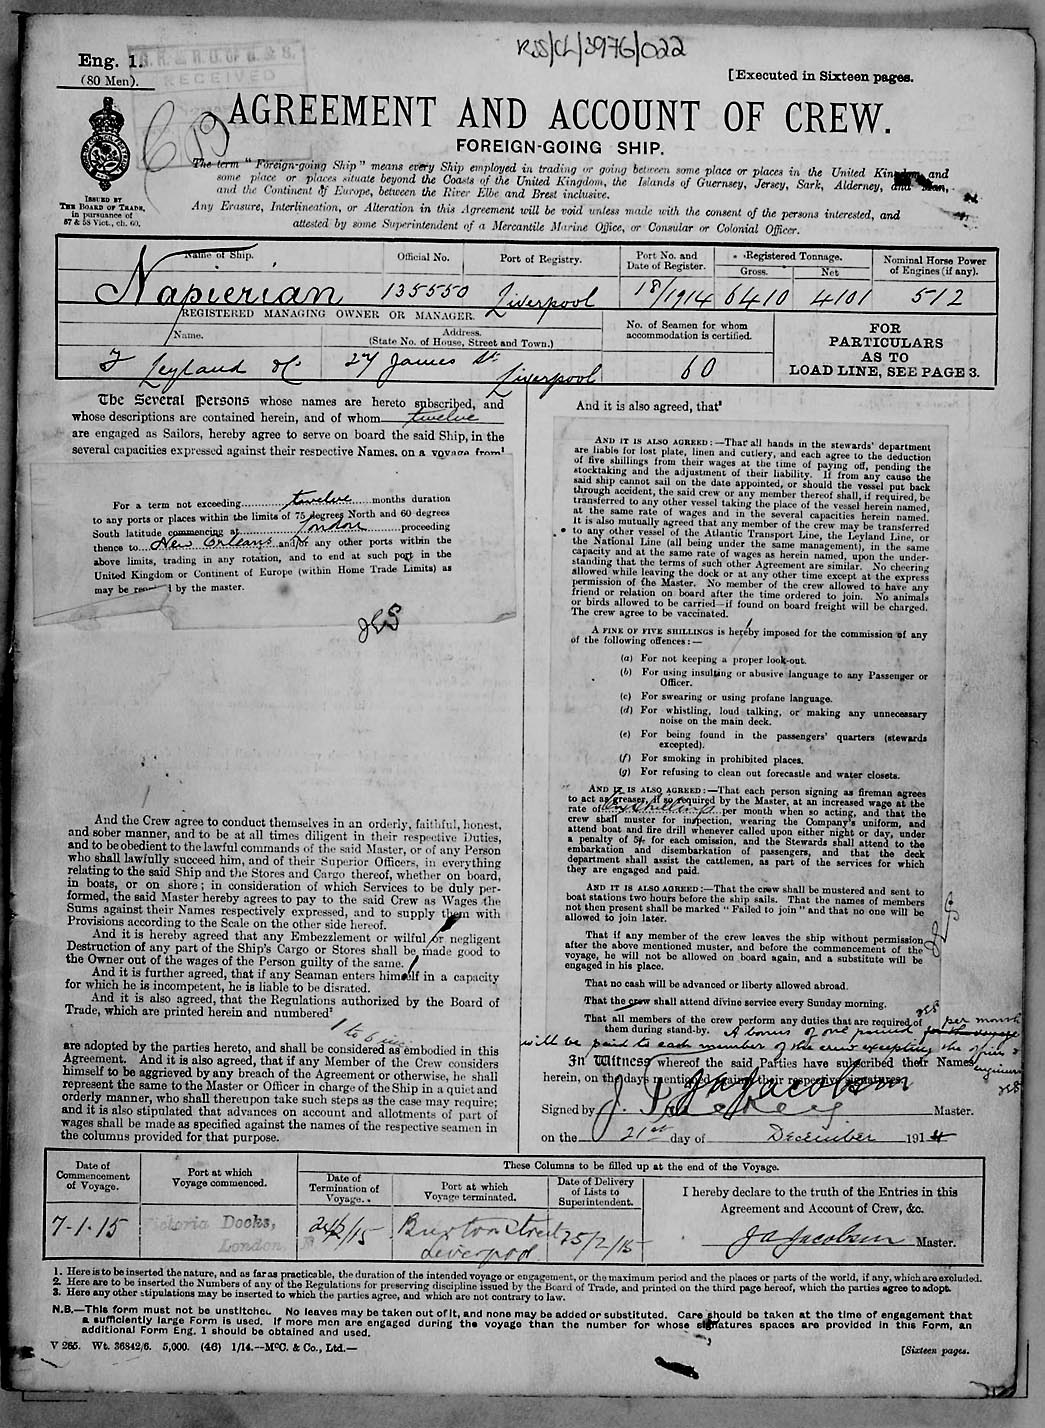 RSS/CL/3976/022
Eng. 1.
(80 Men).
RECEIVED
[Executed in Sixteen pages.
AGREEMENT AND ACCOUNT OF CREW.
FOREIGN-GOING SHIP.
The term "Foreign-going Ship" means every Ship employed in trading or going between some place or places in the United Kingdom, and
some place or places situate beyond the Coasts of the United Kingdom, the Islands of Guernsey, Jersey, Sark, Alderney, and Man,
and the Continent of Europe, between the River Elbe and Brest inclusive.
Any Erasure, Interlineation, or Alteration in this Agreement will be void unless made with the consent of the persons interested, and
attested by some Superintendent of a Mercantile Marine Office, or Consular or Colonial Officer.
ISSUED BY
THE BOARD OF TRADE,
in pursuance of
57 & 58 Vict., ch. 60.
Name of Ship. Official No. Port of Registry. Port No. and Date of Register. Registered Tonnage. Gross. Net Nominal Horse Power of Engines (if any).
Napierian 135550 Liverpool 18/1914 6410 4101 512
REGISTERED MANAGING OWNER OR MANAGER.
Name. Address. (State No. of House, Street and Town.) No. of Seamen for whom accommodation is certified.
F Leyland & Co 27 James St. Liverpool 60
FOR
PARTICULARS
AS TO
LOAD LINE, SEE PAGE 3.
The Several Persons whose names are hereto subscribed, and
whose descriptions are contained herein, and of whom twelve
are engaged as Sailors, hereby agree to serve on board the said Ship, in the
several capacities expressed against their respective Names, on a voyage from
For a term not exceeding twelve months duration
to any ports or places within the limits of 75 degrees North and 60 degrees
South latitude commencing at London proceeding
thence to New Orleans and/or any other ports within the
above limits, trading in any rotation, and to end at such port in the
United Kingdom or Continent of Europe (within Home Trade Limits) as
may be required by the master.
And the Crew agree to conduct themselves in an orderly, faithful, honest,
and sober manner, and to be at all times diligent in their respective Duties,
and to be obedient to the lawful commands of the said Master, or of any Person
who shall lawfully succeed him, and of their Superior Officers, in everything
relating to the said Ship and the Stores and Cargo thereof, whether on board,
in boats, or on shore; in consideration of which Services to be duly per-
formed, the said Master hereby agrees to pay to the said Crew as Wages the
Sums against their Names respectively expressed, and to supply them with
Provisions according to the Scale on the other side hereof.
And it is hereby agreed that any Embezzlement or wilful or negligent
Destruction of any part of the Ship's Cargo or Stores shall be made good to
the Owner out of the wages of the Person guilty of the same.
And it is further agreed, that if any Seaman enters himself in a capacity
for which he is incompetent, he is liable to be disrated.
And it is also agreed, that the Regulations authorized by the Board of
Trade, which are printed herein and numbered²
1 to 6 inc
are adopted by the parties hereto, and shall be considered as embodied in this
Agreement. And it is also agreed, that if any Member of the Crew considers
himself to be aggrieved by any breach of the Agreement or otherwise, he shall
represent the same to the Master or Officer in charge of the Ship in a quiet and
orderly manner, who shall thereupon take such steps as the case may require;
and it is also stipulated that advances on account and allotments of part of
wages shall be made as specified against the names of the respective seamen in
the columns provided for that purpose.
And it is also agreed, that³
AND IT IS ALSO AGREED:—That all hands in the stewards' department
are liable for lost plate, linen and cutlery, and each agree to the deduction
of five shillings from their wages at the time of paying off, pending the
stocktaking and the adjustment of their liability. If from any cause the
said ship cannot sail on the date appointed, or should the vessel put back
through accident, the said crew or any member thereof shall, if required, be
transferred to any other vessel taking the place of the vessel herein named,
at the same rate of wages and in the several capacities herein named.
It is also mutually agreed that any member of the crew may be transferred
to any other vessel of the Atlantic Transport Line, the Leyland Line, or
the National Line (all being under the same management), in the same
capacity and at the same rate of wages as herein named, upon the under-
standing that the terms of such other Agreement are similar. No cheering
allowed while leaving the dock or at any other time except at the express
permission of the Master. No member of the crew allowed to have any
friend or relation on board after the time ordered to join. No animals
or birds allowed to be carried—if found on board freight will be charged.
The crew agree to be vaccinated.
A FINE OF FIVE SHILLINGS is hereby imposed for the commission of any
of the following offences:—
(a) For not keeping a proper look-out.
(b) For using insulting or abusive language to any Passenger or
Officer.
(c) For swearing or using profane language.
(d) For whistling, loud talking, or making any unnecessary
noise on the main deck.
(e) For being found in the passengers' quarters (stewards
excepted).
(f) For smoking in prohibited places.
(g) For refusing to clean out forecastle and water closets.
AND IT IS ALSO AGREED:—That each person signing as fireman agrees
to act as greaser, if so required by the Master, at an increased wage at the
rate of shillings per month when so acting, and that the
crew shall muster for inspection, wearing the Company's uniform, and
attend boat and fire drill whenever called upon either night or day, under
a penalty of 5/- for each omission, and the Stewards shall attend to the
embarkation and disembarkation of passengers, and that the deck
department shall assist the cattlemen, as part of the services for which
they are engaged and paid.
AND IT IS ALSO AGREED:—That the crew shall be mustered and sent to
boat stations two hours before the ship sails. That the names of members
not then present shall be marked "Failed to join" and that no one will be
allowed to join later.
That if any member of the crew leaves the ship without permission
after the above mentioned muster, and before the commencement of the
voyage, he will not be allowed on board again, and a substitute will be
engaged in his place.
That no cash will be advanced or liberty allowed abroad.
That the crew shall attend divine service every Sunday morning.
That all members of the crew perform any duties that are required of
them during stand-by. A bonus of one pound for the voyage per month
will be paid to each member of the crew excepting the officers & engineers
In Witness whereof the said Parties have subscribed their Names
herein, on the days mentioned against their respective signatures
Signed by J A Jacobson Master.
on the 21st day of December 1914
Date of Commencement of Voyage. Port at which Voyage commenced. These Columns to be filled up at the end of the Voyage.
Date of Termination of Voyage. Port at which Voyage terminated. Date of Delivery of Lists to Superintendent.
I hereby declare to the truth of the Entries in this
Agreement and Account of Crew, &c.
7-1-15 Victoria Docks, London. 24/2/15 Liverpool 25/2/15
J A Jacobson Master.
1. Here is to be inserted the nature, and as far as practicable, the duration of the intended voyage or engagement, or the maximum period and the places or parts of the world, if any, which are excluded.
2. Here are to be inserted the Numbers of any of the Regulations for preserving discipline issued by the Board of Trade, and printed on the third page hereof, which the parties agree to adopt.
3. Here any other stipulations may be inserted to which the parties agree, and which are not contrary to law.
N.B.—This form must not be unstitched. No leaves may be taken out of it, and none may be added or substituted. Care should be taken at the time of engagement that
a sufficiently large Form is used. If more men are engaged during the voyage than the number for whose signatures spaces are provided in this Form, an
additional Form Eng. 1 should be obtained and used.
V 265. Wt. 36842/6. 5,000. (46) 1/14.—McC. & Co., Ltd.—
[Sixteen pages.